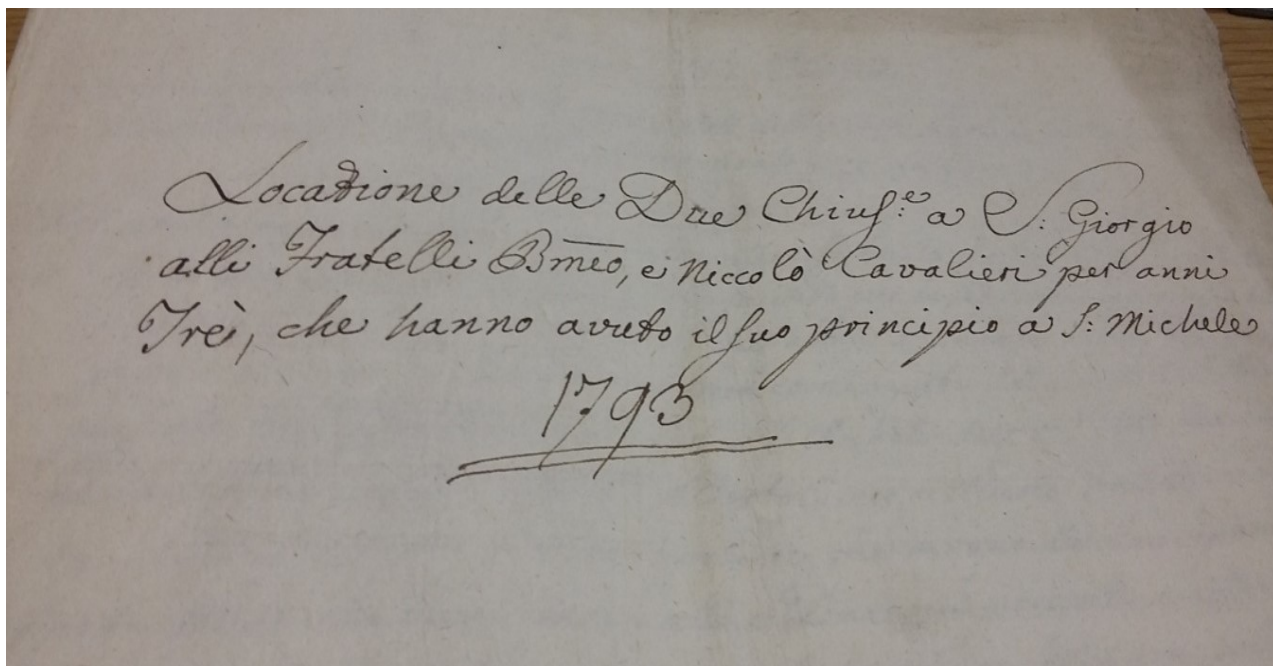 Locazione delle Due Chius.e a S: Giorgio
alli Fratelli Bmeo, e Niccolò Cavalieri per anni
Trè, che hanno avuto il suo principio a S: Michele
1793